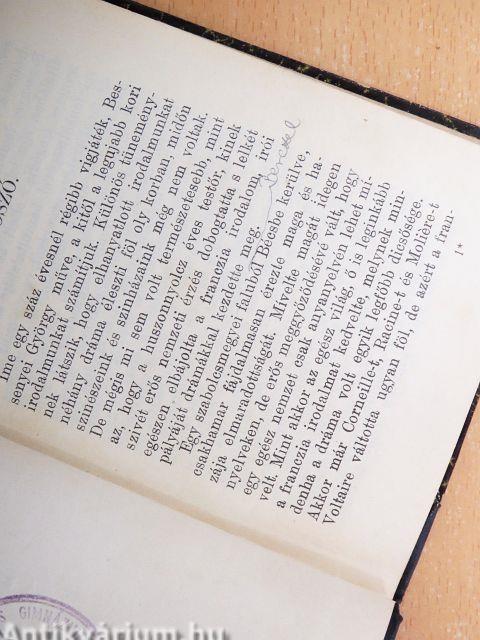 SZÓ.
Ime egy száz évesnél régibb vigjáték, Bes-
senyei György műve, a kitől a legujabb kori
irodalmunkat számitjuk. Különös tünemény-
nek látszik, hogy elhanyatlott irodalmunkat
néhány dráma éleszti föl oly korban, midőn
szinészeink és szinházaink még nem voltak.
De mégis mi sem volt természetesebb, mint
az, hogy a huszonnyolcz éves testőr, kinek
szivét erős nemzeti érzés dobogtatta s lelkét
egészen elbájolta a franczia irodalom, irói
pályáját drámákkal kezdette meg.
Egy szabolcsmegyei faluból Bécsbe kerülve,
csakhamar fájdalmasan érezte maga és ha-
zája elmaradottságát. Mívelte magát idegen
nyelveken, de erős meggyőződésévé vált, hogy
egy egész nemzet csak anyanyelvén lehet mi-
velt. Mint akkor az egész világ, ő is leginkább
a franczia irodalmat kedvelte, melynek min-
denha a dráma volt egyik legfőbb dicsősége.
Akkor már Corneille-t, Racine-t és Molière-t
Voltaire váltotta ugyan föl, de azért a fran-
1*
GIMNÁZ
Antikvárium.hu